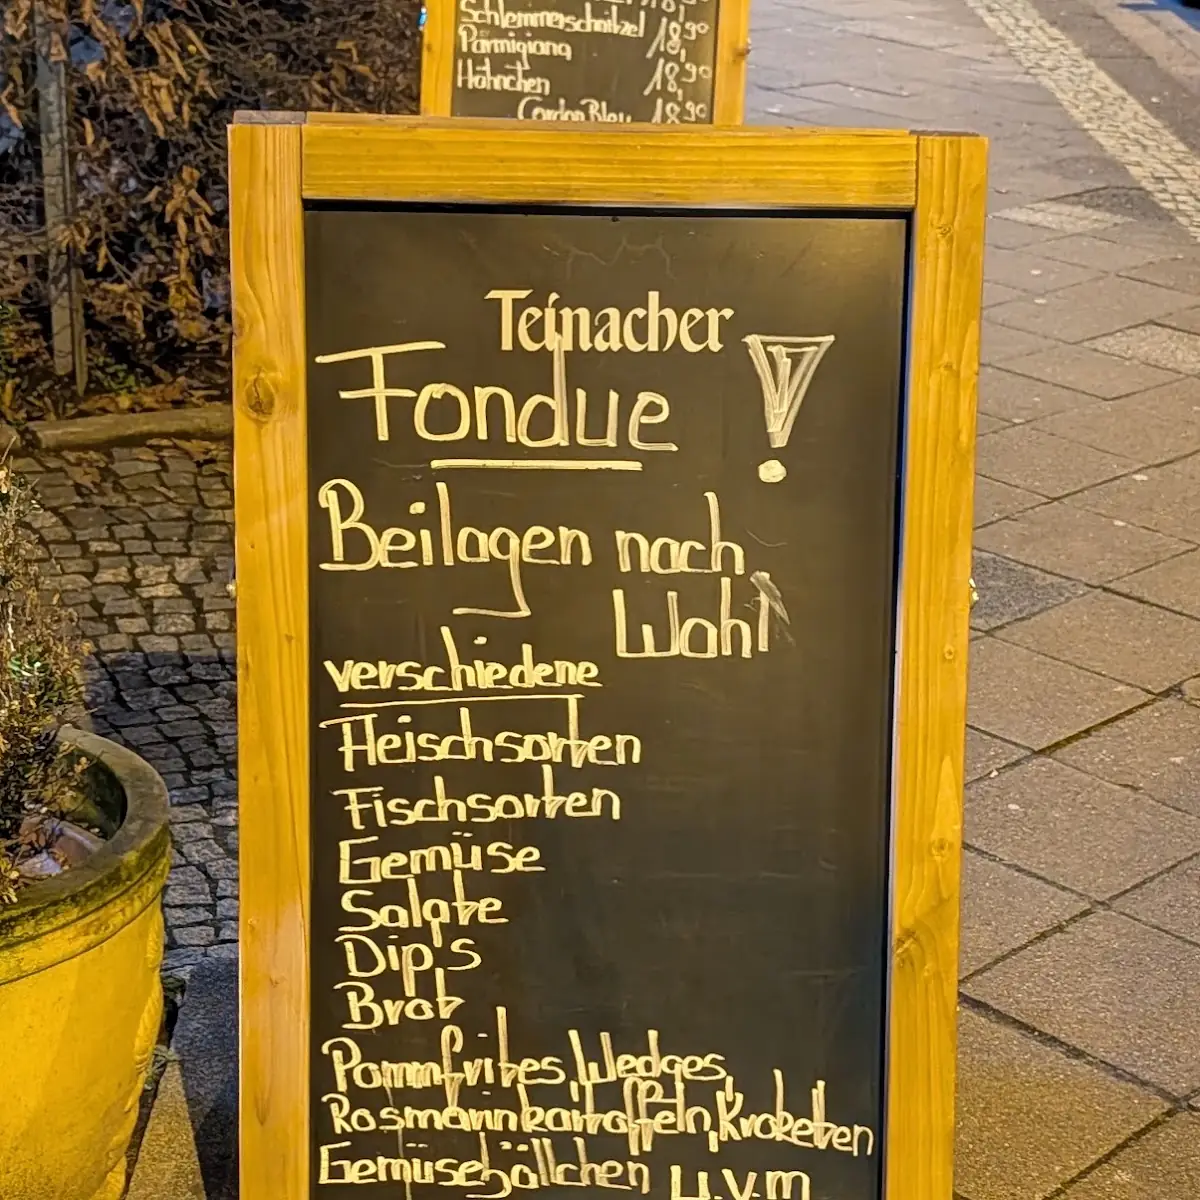 Schlemmerschnitzel 18,90
Parmigiana 18,90
Hähnchen 18,90
Cordon Bleu 18,90
Teinacher
Fondue !
Beilagen nach
Wahl
verschiedene
Fleischsorten
Fischsorten
Gemüse
Salate
Dip's
Brot
Pommfrites, Wedges,
Rosmarinkartoffeln, Kroketten
Gemüsebällchen u.v.m